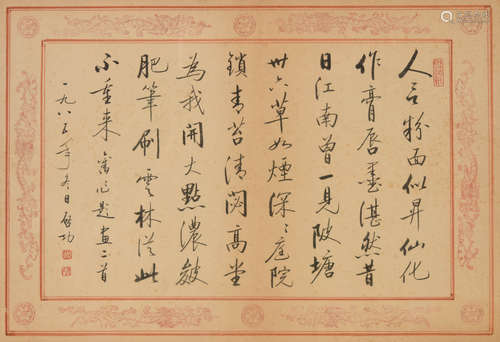 人言粉面似昇仙化
作膏唇墨湛然昔
日江南曾一見陂塘
卅六草如煙深〻庭院
鎖青苔清閟高堂
為我開大點濃皴
肥筆刷雲林從此
不重來 舊作題畫二首
一九八五年冬日啟功